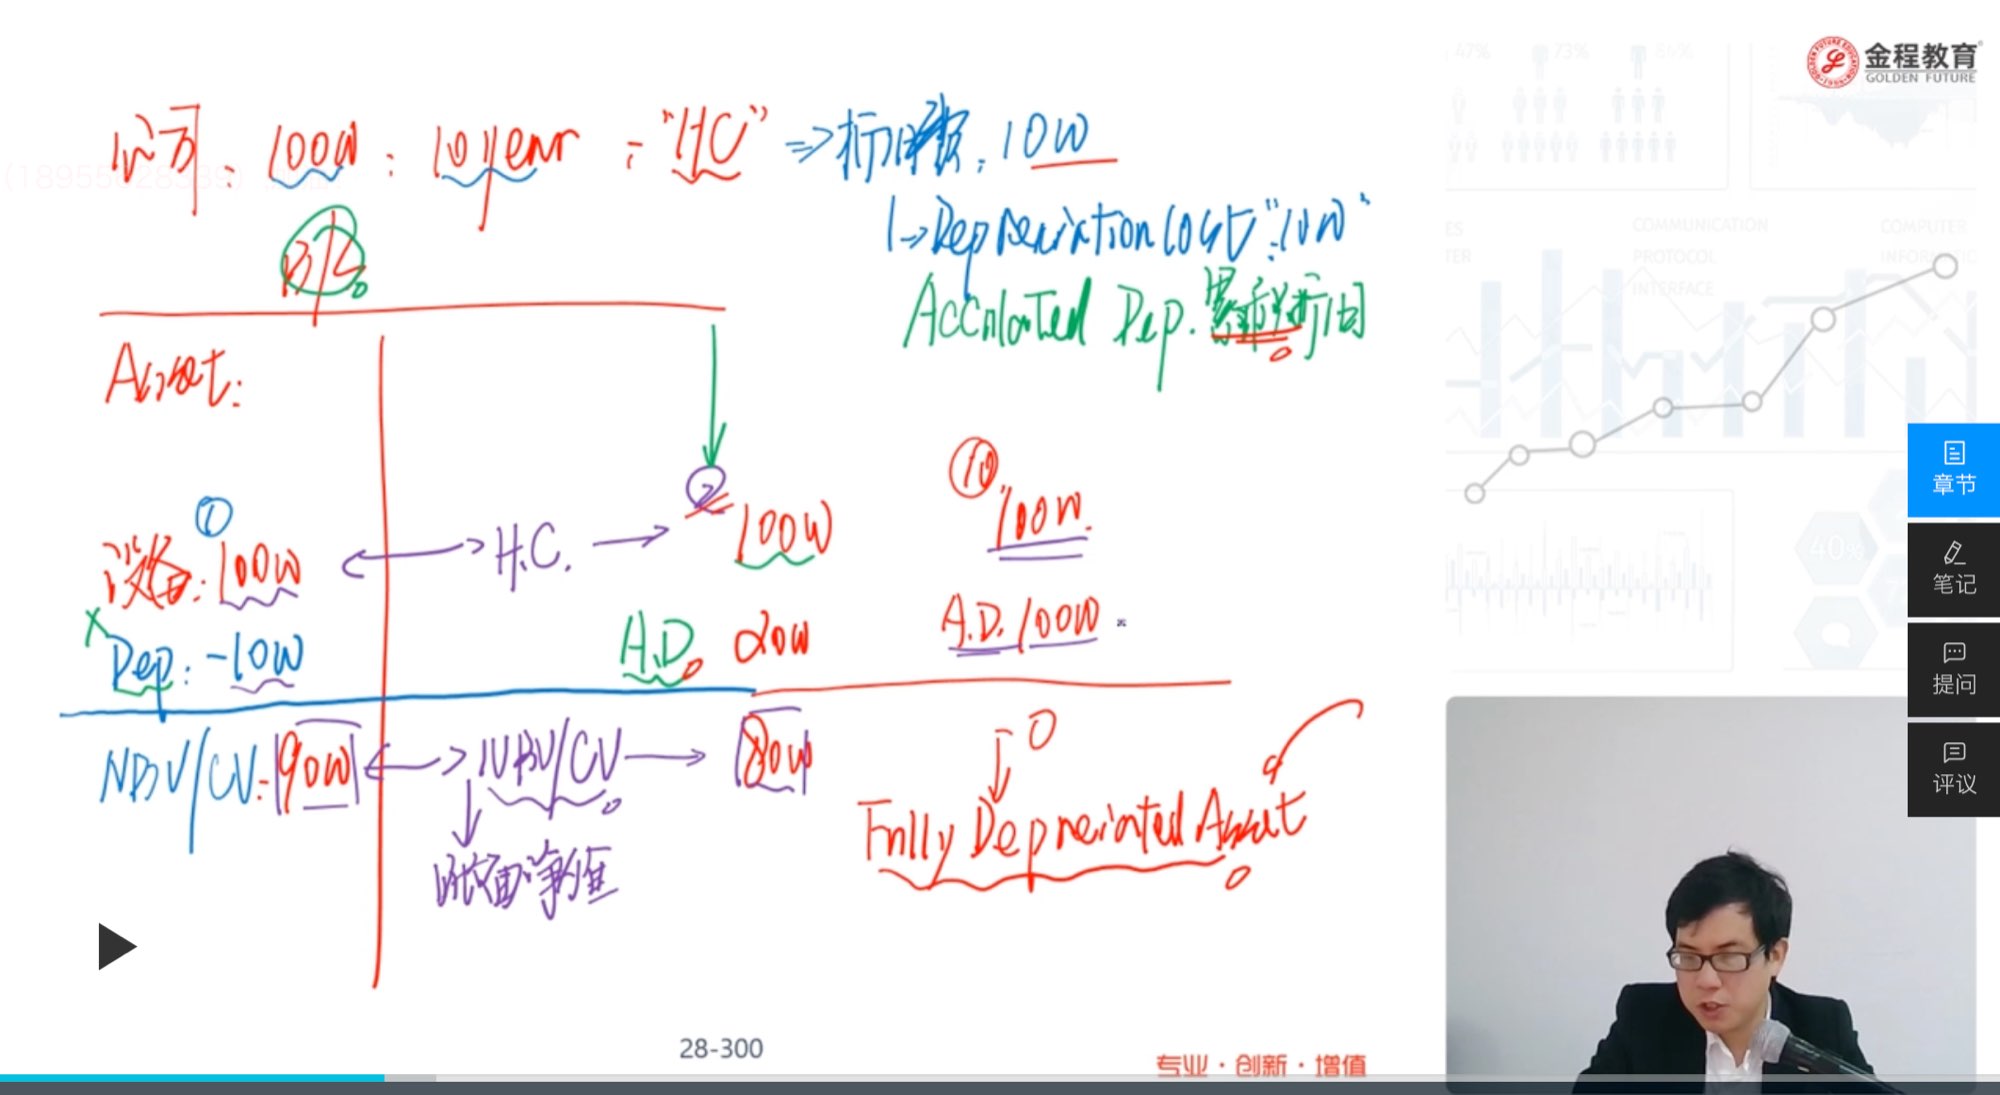 金程教育
GOLDEN FUTURE
公司: 100W : 10 year : "HC" => 折旧费: 10W
→ Depreciation Cost: "10W"
B/S
Acculated Dep. 累计折旧
Asset:
① ② ⑩
设备: 100W H.C. 100W 100W.
Dep: -10W A.D. 20W A.D. 100W
NBV/CV: 90W NBV/CV 80W 0
账面净值
Fully Depreciated Asset
47% 73%
COMMUNICATION
PROTOCOL
INTERFACE
COMPUTER
40%
章节
笔记
提问
评议
28-300
专业·创新·增值